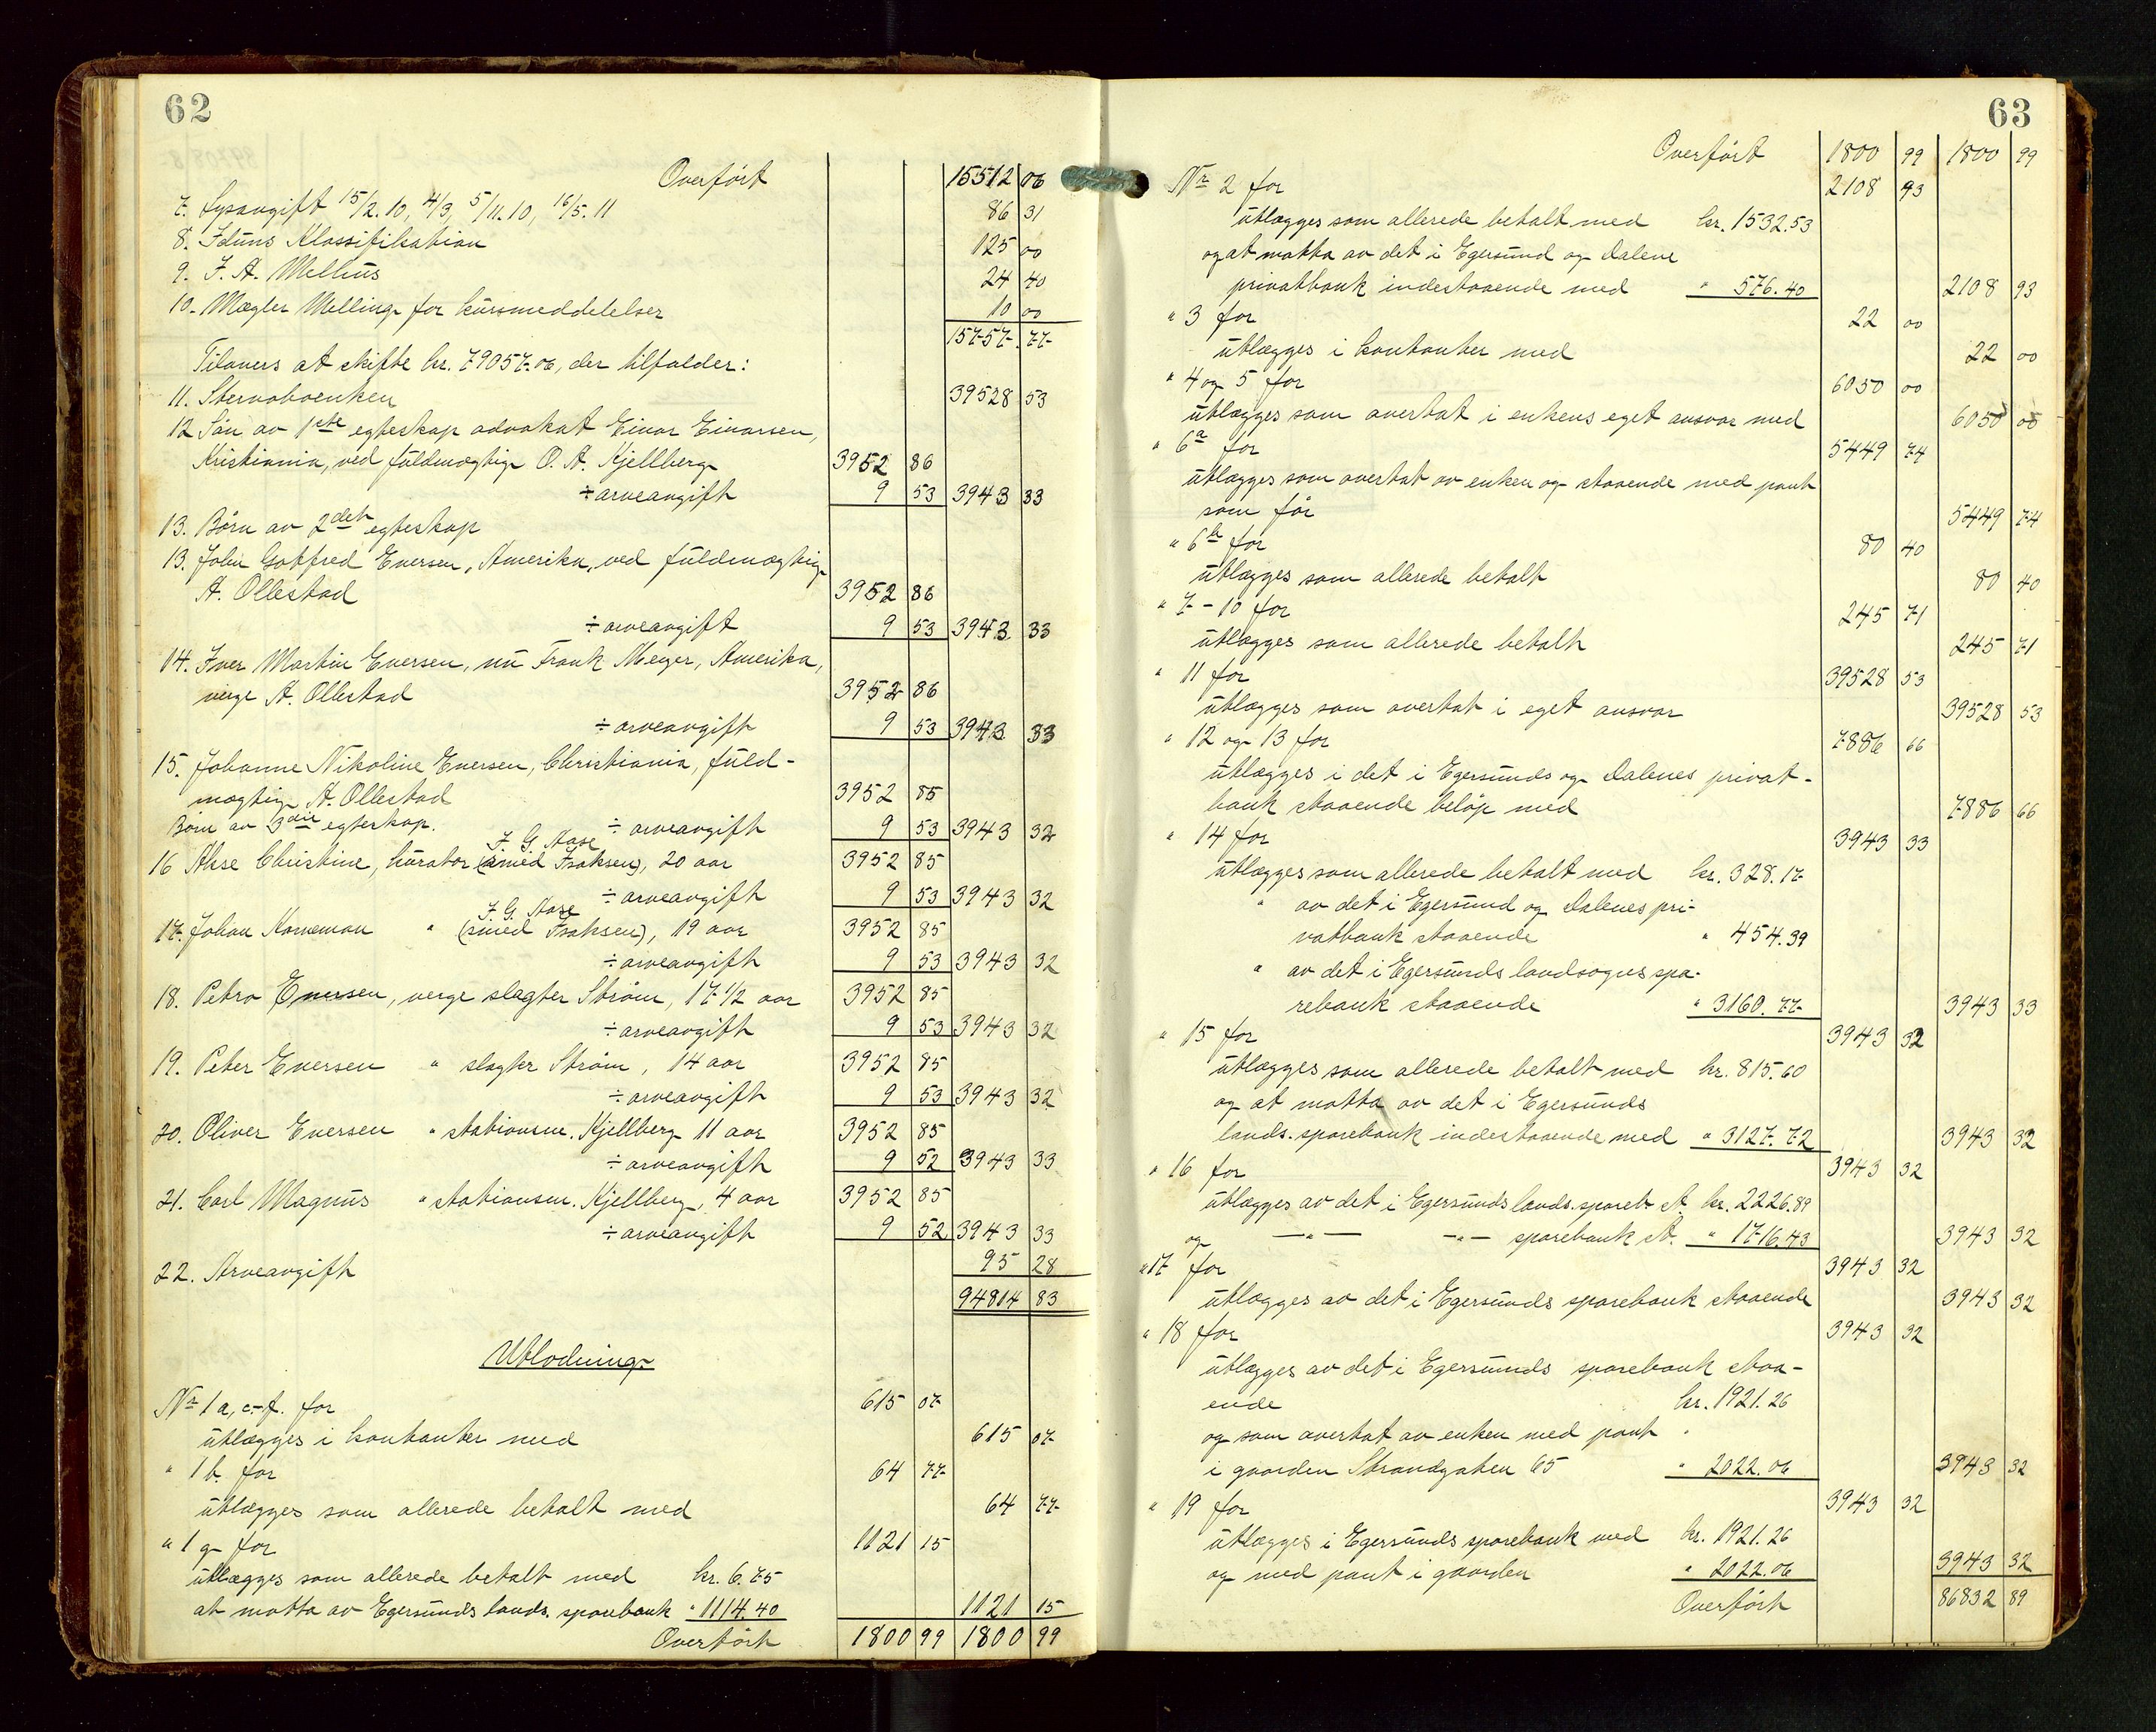 62
Overført 15512 06
7. Lysavgift 15/2.10, 4/3, 5/11.10, 16/5.11 86 31
8. Iduns Klassifikation 125 00
9. F. A. Mellius 24 40
10. Mægler Melling for kursmeddelelser 10 00
15757. 77
Tilovers at skifte kr. 79057.06, der tilfalder:
11. Stervboenken 39528 53
12 Søn av 1ste egteskap advokat Einar Einarsen,
Kristiania, ved fuldmægtig O. A. Kjellberg 3952 86
÷ arveavgift 9 53 3943 33
13. Børn av 2det egteskap
13. John Gotfred Eversen, Amerika, ved fuldmægtig
A. Ollestad 3952 86
÷ arveavgift 9 53 3943 33
14. Iver Martin Eversen, nu Frank Meyer, Amerika,
verge A. Ollestad 3952 86
÷ arveavgift 9 53 3943 33
15. Johanne Nikoline Eversen, Christiania, fuld-
mægtig A. Ollestad 3952 85
Børn av 3die egteskap. ÷ arveavgift 9 53 3943 32
F. G. Aase
16 Aase Christine, kurator (smed Isaksen), 20 aar 3952 85
÷ arveavgift 9 53 3943 32
F. G. Aase
17. Johan Korneman " (smed Isaksen), 19 aar 3952 85
÷ arveavgift 9 53 3943 32
18. Petra Eversen, verge slagter Strøm, 17 1/2 aar 3952 85
÷ arveavgift 9 53 3943 32
19. Peter Eversen " slagter Strøm, 14 aar 3952 85
÷ arveavgift 9 53 3943 32
20. Oliver Eversen " stationsm. Kjellberg 11 aar 3952 85
÷ arveavgift 9 52 3943 33
21. Carl Magnus " stationsm. Kjellberg, 4 aar 3952 85
÷ arveavgift 9 52 3943 33
22. Arveavgift 95 28
94814 83
Utlodning
Nr 1 a, c-f. for 615 07
utlægges i kontanter med 615 07
" 1 b. for 64 77
utlægges som allerede betalt med 64 77
" 1 g for 1121 15
utlægges som allerede betalt med kr. 6.75
at motta av Egersunds lands. sparebank " 1114.40 1121 15
Overført 1800 99 1800 99
63
Overført 1800 99 1800 99
Nr 2 for 2108 93
utlægges som allerede betalt med kr. 1532.53
og at motta av det i Egersund og Dalene
privatbank indestaaende med " 576.40 2108 93
" 3 for 22 00
utlægges i kontanter med 22 00
" 4 og 5 for 6050 00
utlægges som overtat i enkens eget ansvar med 6050 00
" 6a for 5449 74
utlægges som overtat av enken og staaende med pant
som før 5449 74
" 6b for 80 40
utlægges som allerede betalt 80 40
" 7-10 for 245 71
utlægges som allerede betalt 245 71
" 11 for 39528 53
utlægges som overtat i eget ansvar 39528 53
" 12 og 13 for 7886 66
utlægges i det i Egersunds og Dalenes privat-
bank staaende beløp med 7886 66
" 14 for 3943 33
utlægges som allerede betalt med kr. 328.17
" av det i Egersund og Dalenes pri-
vatbank staaende " 454.39
" av det i Egersunds landsogns spa-
rebank staaende " 3160.77 3943 33
" 15 for 3943 32
utlægges som allerede betalt med kr. 815.60
og at motta av det i Egersunds
lands. sparebank indestaaende med " 3127.72 3943 32
" 16 for 3943 32
utlægges av det i Egersunds lands. spareb. A. kr. 2226.89
og —"— —"— sparebank A. " 1716.43 3943 32
" 17 for 3943 32
utlægges av det i Egersunds sparebank staaende 3943 32
" 18 for 3943 32
utlægges av det i Egersunds sparebank staa-
ende kr. 1921.26
og som overtat av enken med pant "
i gaarden Strandgaten 65 " 2022.06 3943 32
" 19 for 3943 32
utlægges i Egersunds sparebank med kr. 1921.26
og med pant i gaarden " 2022.06 3943 32
Overført 86832 89